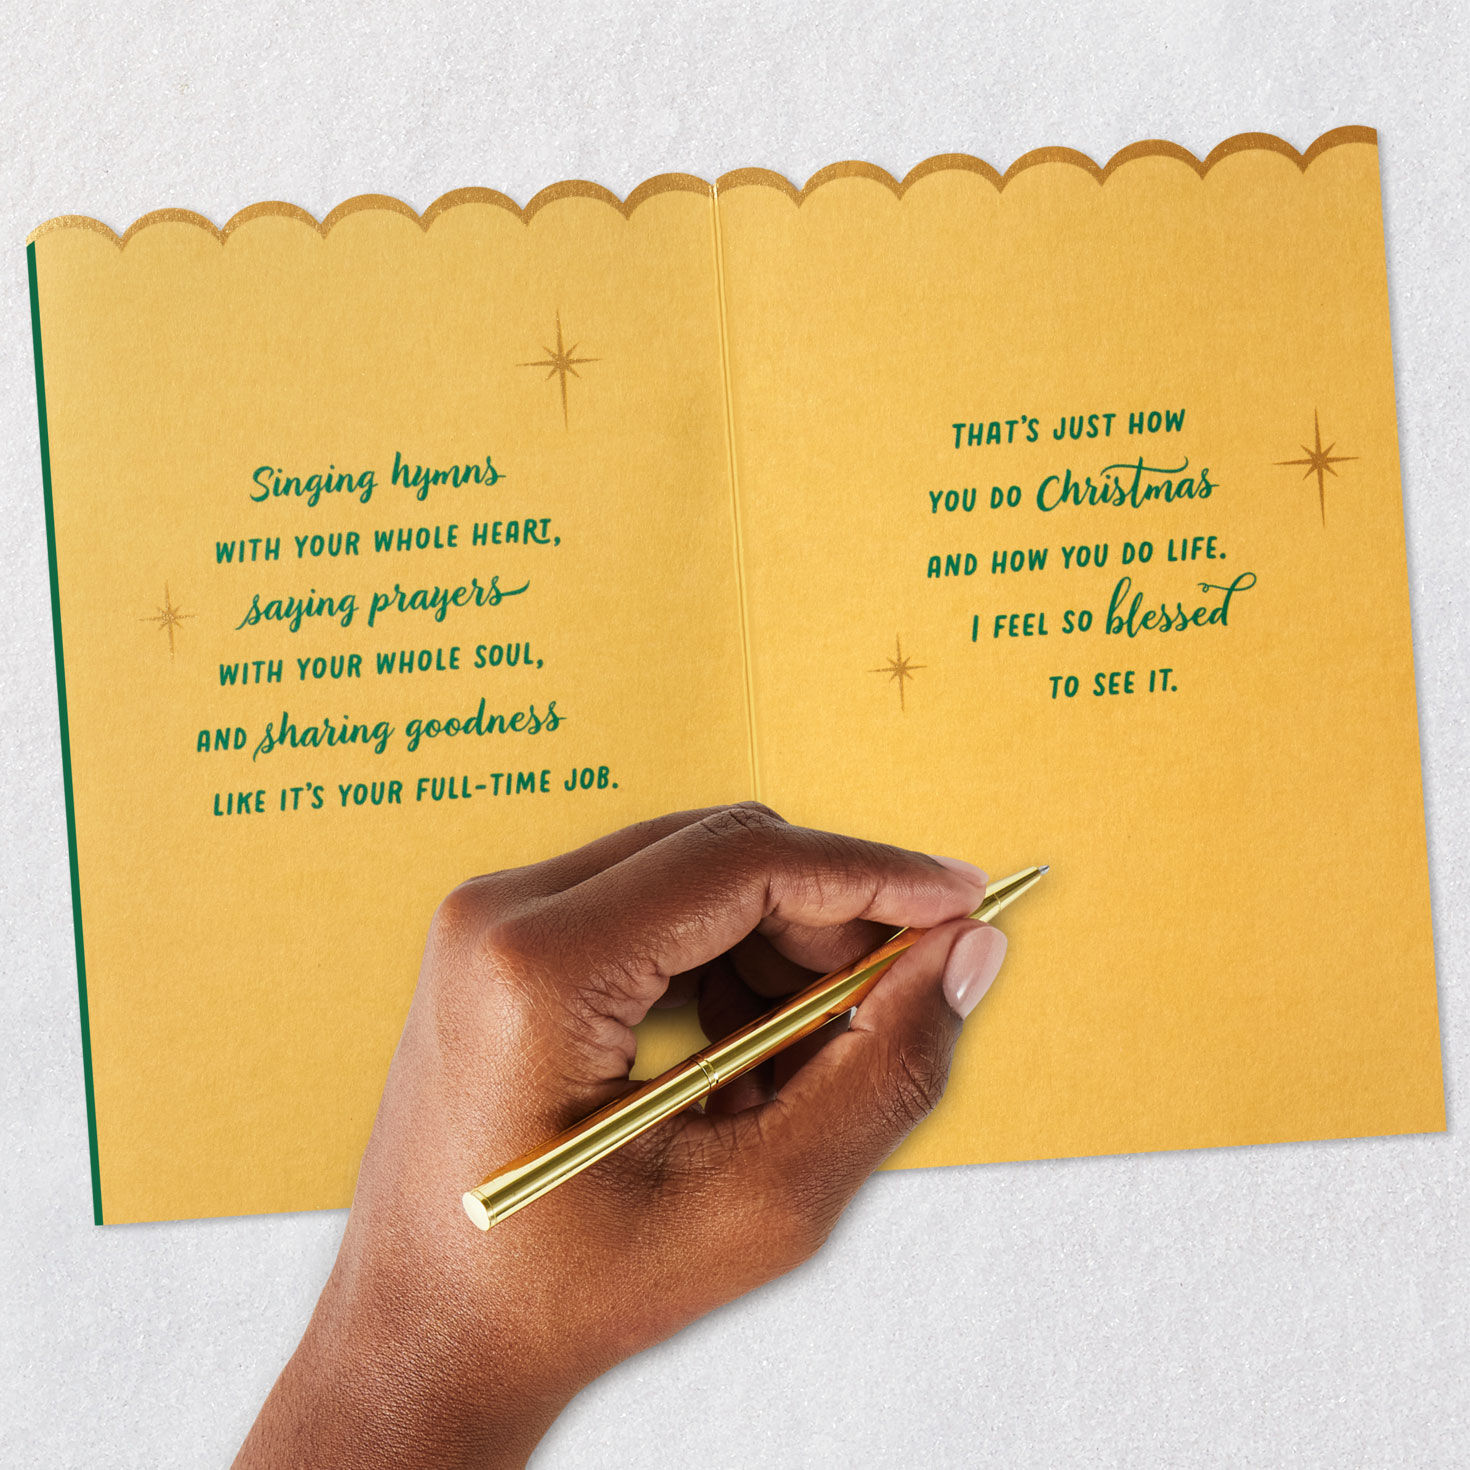 Singing hymns
WITH YOUR WHOLE HEART,
saying prayers
WITH YOUR WHOLE SOUL,
AND sharing goodness
LIKE IT'S YOUR FULL-TIME JOB.
THAT'S JUST HOW
YOU DO Christmas
AND HOW YOU DO LIFE.
I FEEL SO blessed
TO SEE IT.